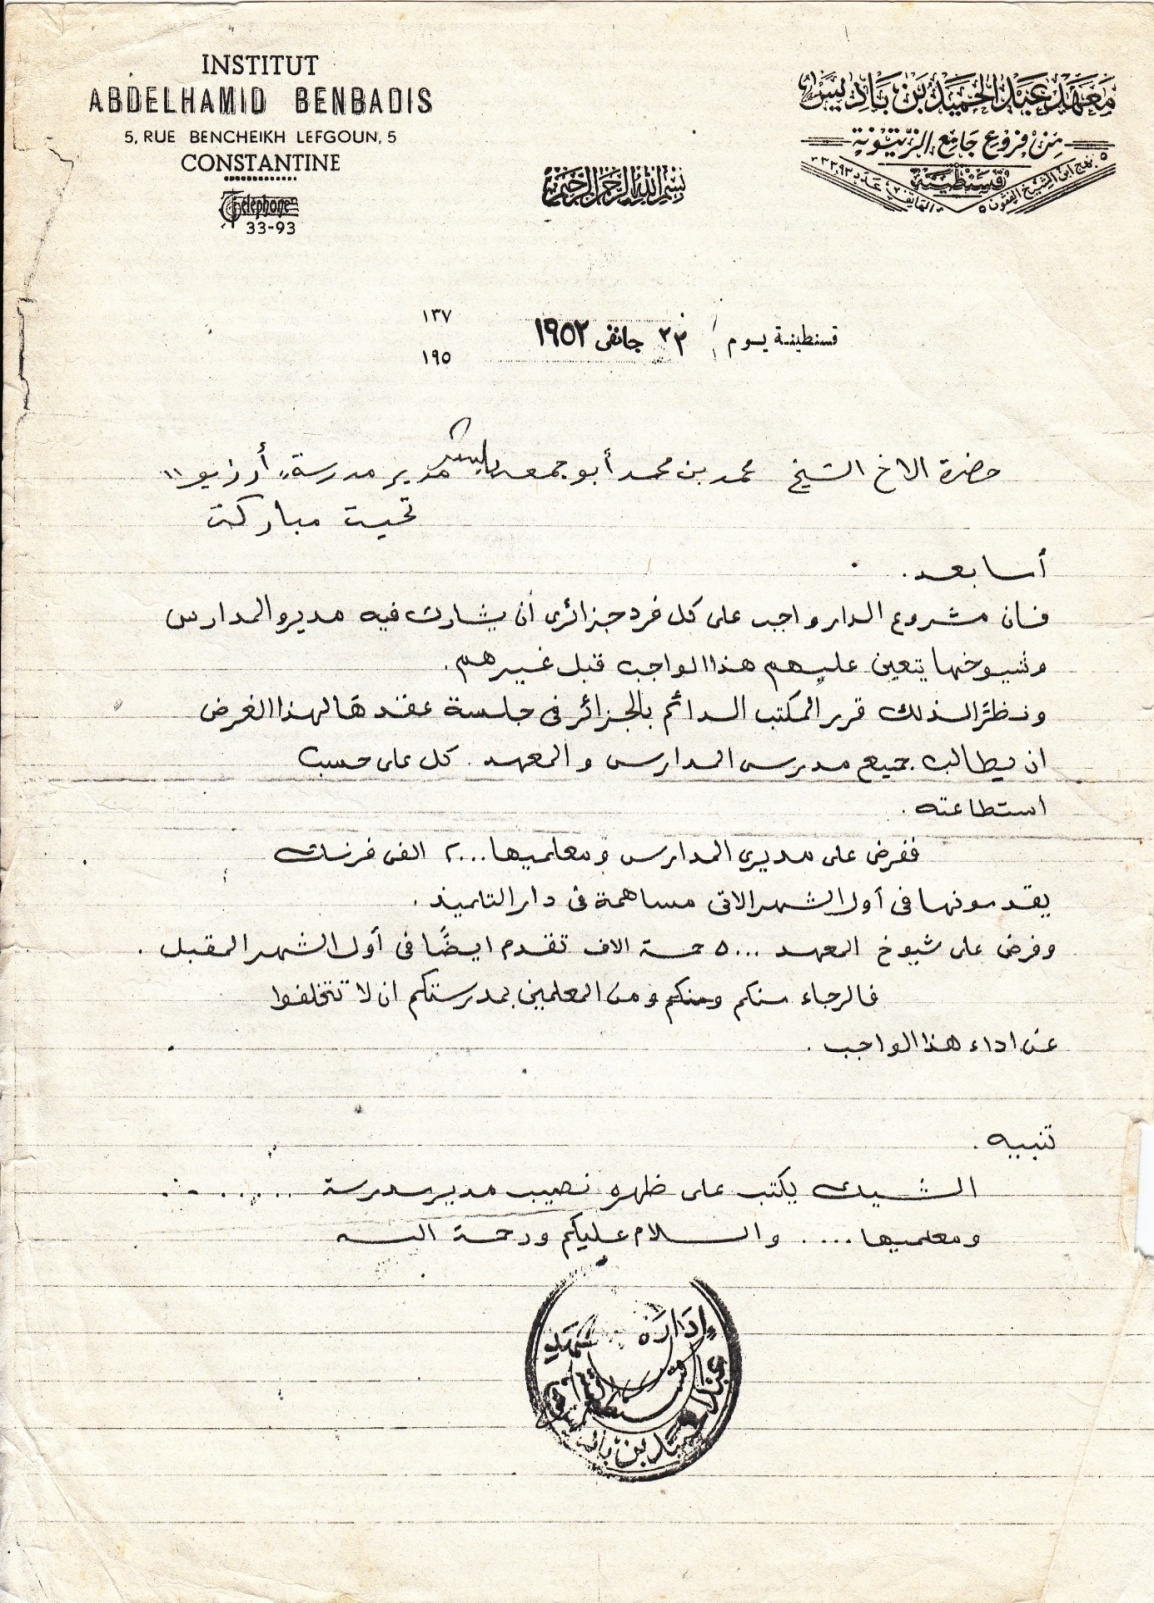 INSTITUT
ABDELHAMID BENBADIS
5, RUE BENCHEIKH LEFGOUN, 5
CONSTANTINE
Téléphone
33-93
معهد عبد الحميد بن باديس
من فروع جامع الزيتونة
قسنطينة
٥ نهج ابن الشيخ الفقون ٥
بسم الله الرحمن الرحيم
١٣٧
قسنطينة يوم ٢٣ جانفي ١٩٥٢
١٩٥
حضرة الاخ الشيخ محمد بن محمد أبو جمعه مدير مدرسة "أرزيو"
تحية مباركة
أما بعد.
فان مشروع الدار واجب على كل فرد جزائري أن يشارك فيه مديرو المدارس
وشيوخها يتعين عليهم هذا الواجب قبل غيرهم.
ونظرًا لذلك قرر المكتب الدائم بالجزائر في جلسة عقدها لهذا الغرض
ان يطالب جميع مدرسي المدارس والمعهد. كل على حسب
استطاعته.
ففرض على مديري المدارس ومعلميها ٢٠٠٠ الفي فرنك
يقدمونها في أول الشهر الاتي مساهمة في دار التلميذ.
وفرض على شيوخ المعهد ٥٠٠٠ خمسة الاف تقدم ايضًا في أول الشهر المقبل.
فالرجاء منكم ومنكم ومن المعلمين بمدرستكم ان لا تتخلفوا
عن اداء هذا الواجب.
تنبيه.
الشيك يكتب على ظهره نصيب مدير مدرسة .......
ومعلميها .... والسلام عليكم ورحمة الله
إدارة معهد
عبد الحميد بن باديس
قسنطينة